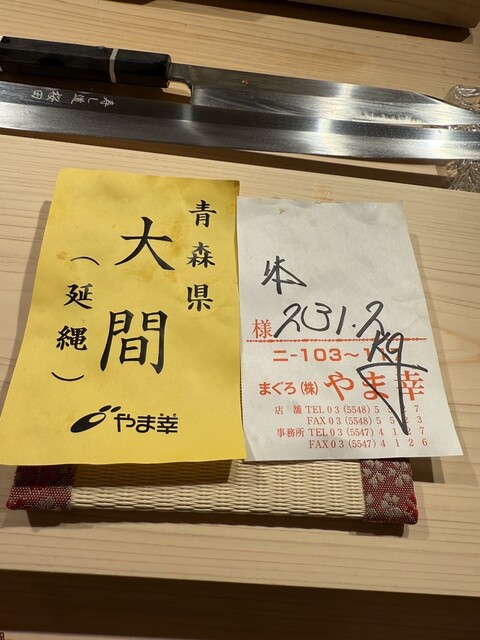 寿し道 桜田
青森県
大間
（延縄）
やま幸
様
231.2
kg
ニ-103〜1
まぐろ㈱やま幸
店舗 TEL 03 (5548) 5 2 7
FAX 03 (5548) 5 5 2 3
事務所 TEL 03 (5547) 4 1 2 7
FAX 03 (5547) 4 1 2 6